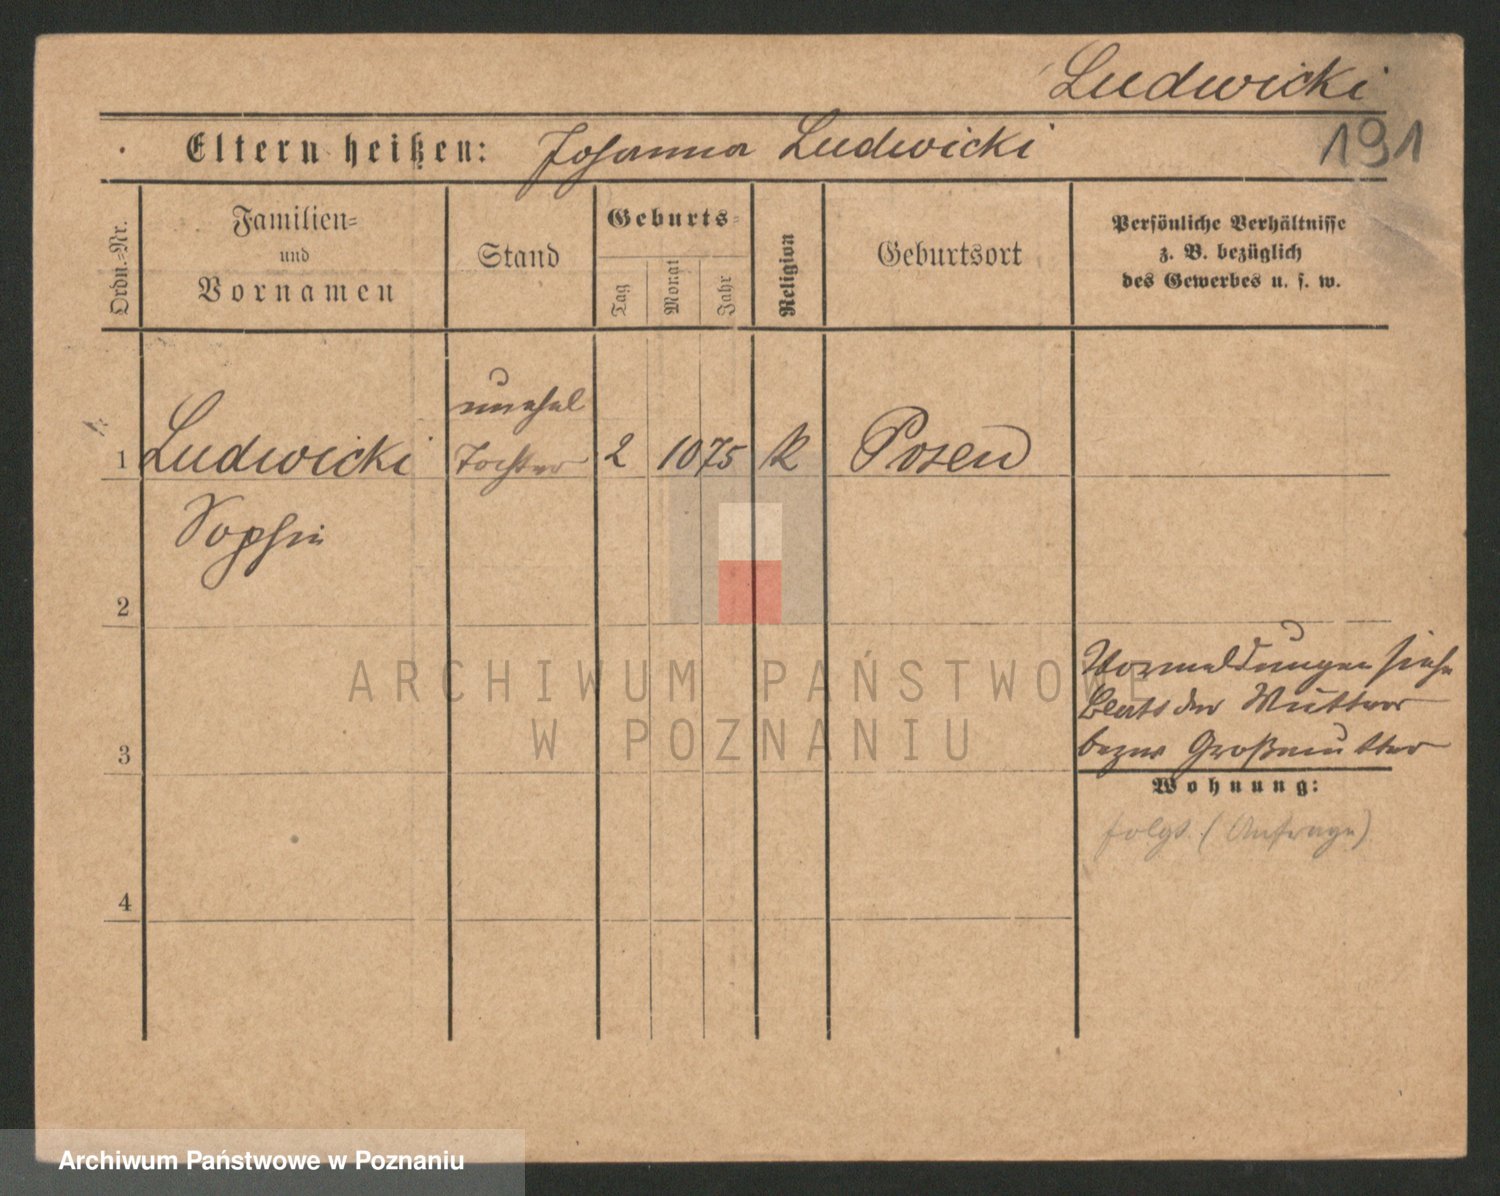 Ludwicki
191
Eltern heißen: Johanna Ludwicki
Ordn.=Nr.
Familien=
und
Vornamen
Stand
Geburts=
Tag
Monat
Jahr
Religion
Geburtsort
Persönliche Verhältnisse
z. B. bezüglich
des Gewerbes u. s. w.
unehel
1 Ludwicki Tochter 2 10 75 k Posen
Sophie
2
Vormeldungen siehe
Blatt der Mutter
bezw Großmutter
3
Wohnung:
folgt. (Anfrage)
4
ARCHIWUM PAŃSTWOWE
W POZNANIU
Archiwum Państwowe w Poznaniu